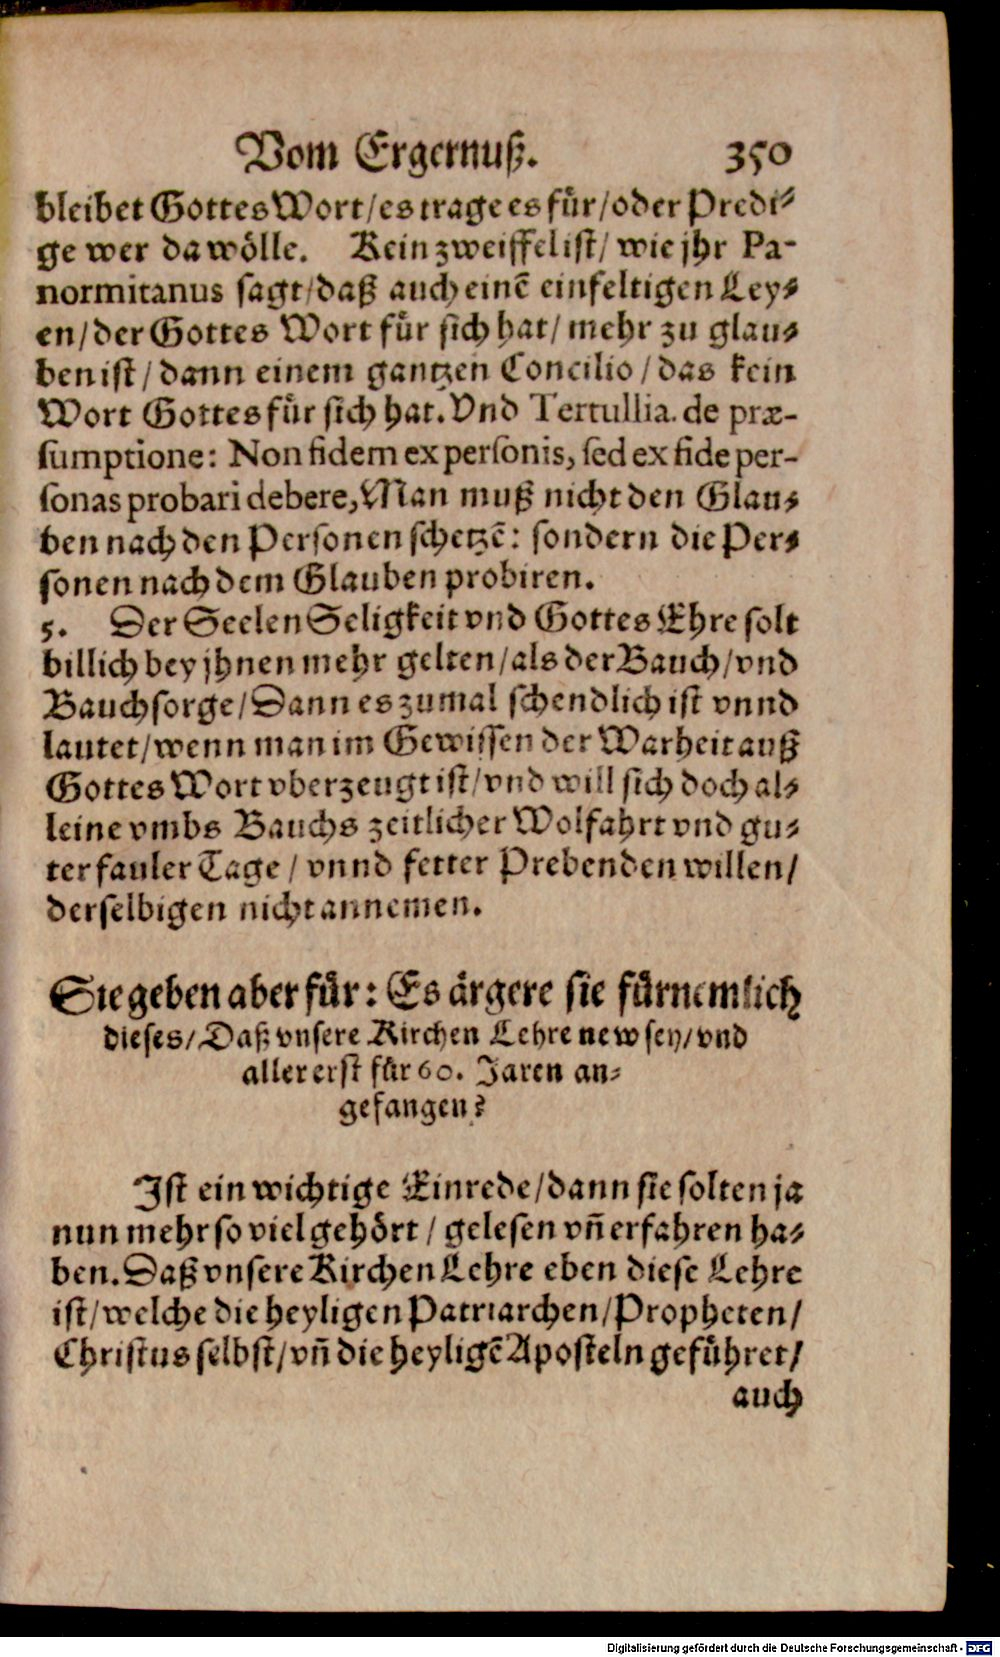 Vom Ergernuß. 350
bleibet Gottes Wort/es trage es fuͤr/oder Predi-
ge wer da woͤlle. Kein zweiffel ist/ wie jhr Pa-
normitanus sagt/daß auch einē einfeltigen Ley-
en/der Gottes Wort fuͤr sich hat/ mehr zu glau-
ben ist/ dann einem gantzen Concilio/das kein
Wort Gottes fuͤr sich hat. Vnd Tertullia. de præ-
sumptione: Non fidem ex personis, sed ex fide per-
sonas probari debere, Man muß nicht den Glau-
ben nach den Personen schetzē: sondern die Per-
sonen nach dem Glauben probiren.
5. Der Seelen Seligkeit vnd Gottes Ehre solt
billich bey jhnen mehr gelten/als der Bauch/vnd
Bauchsorge/Dann es zumal schendlich ist vnnd
lautet/wenn man im Gewissen der Warheit auß
Gottes Wort vberzeugt ist/vnd will sich doch al-
leine vmbs Bauchs zeitlicher Wolfahrt vnd gu-
ter fauler Tage/ vnnd fetter Prebenden willen/
derselbigen nicht annemen.
Sie geben aber fuͤr: Es aͤrgere sie fuͤrnemlich
dieses/Daß vnsere Kirchen Lehre new sey/vnd
aller erst fuͤr 60. Jaren an-
gefangen?
Ist ein wichtige Einrede/dann sie solten ja
nun mehr so viel gehoͤrt/ gelesen vñ erfahren ha-
ben. Daß vnsere Kirchen Lehre eben diese Lehre
ist/welche die heyligen Patriarchen/Propheten/
Christus selbst/vñ die heyligē Aposteln gefuͤhret/
auch
Digitalisierung gefördert durch die Deutsche Forschungsgemeinschaft - DFG